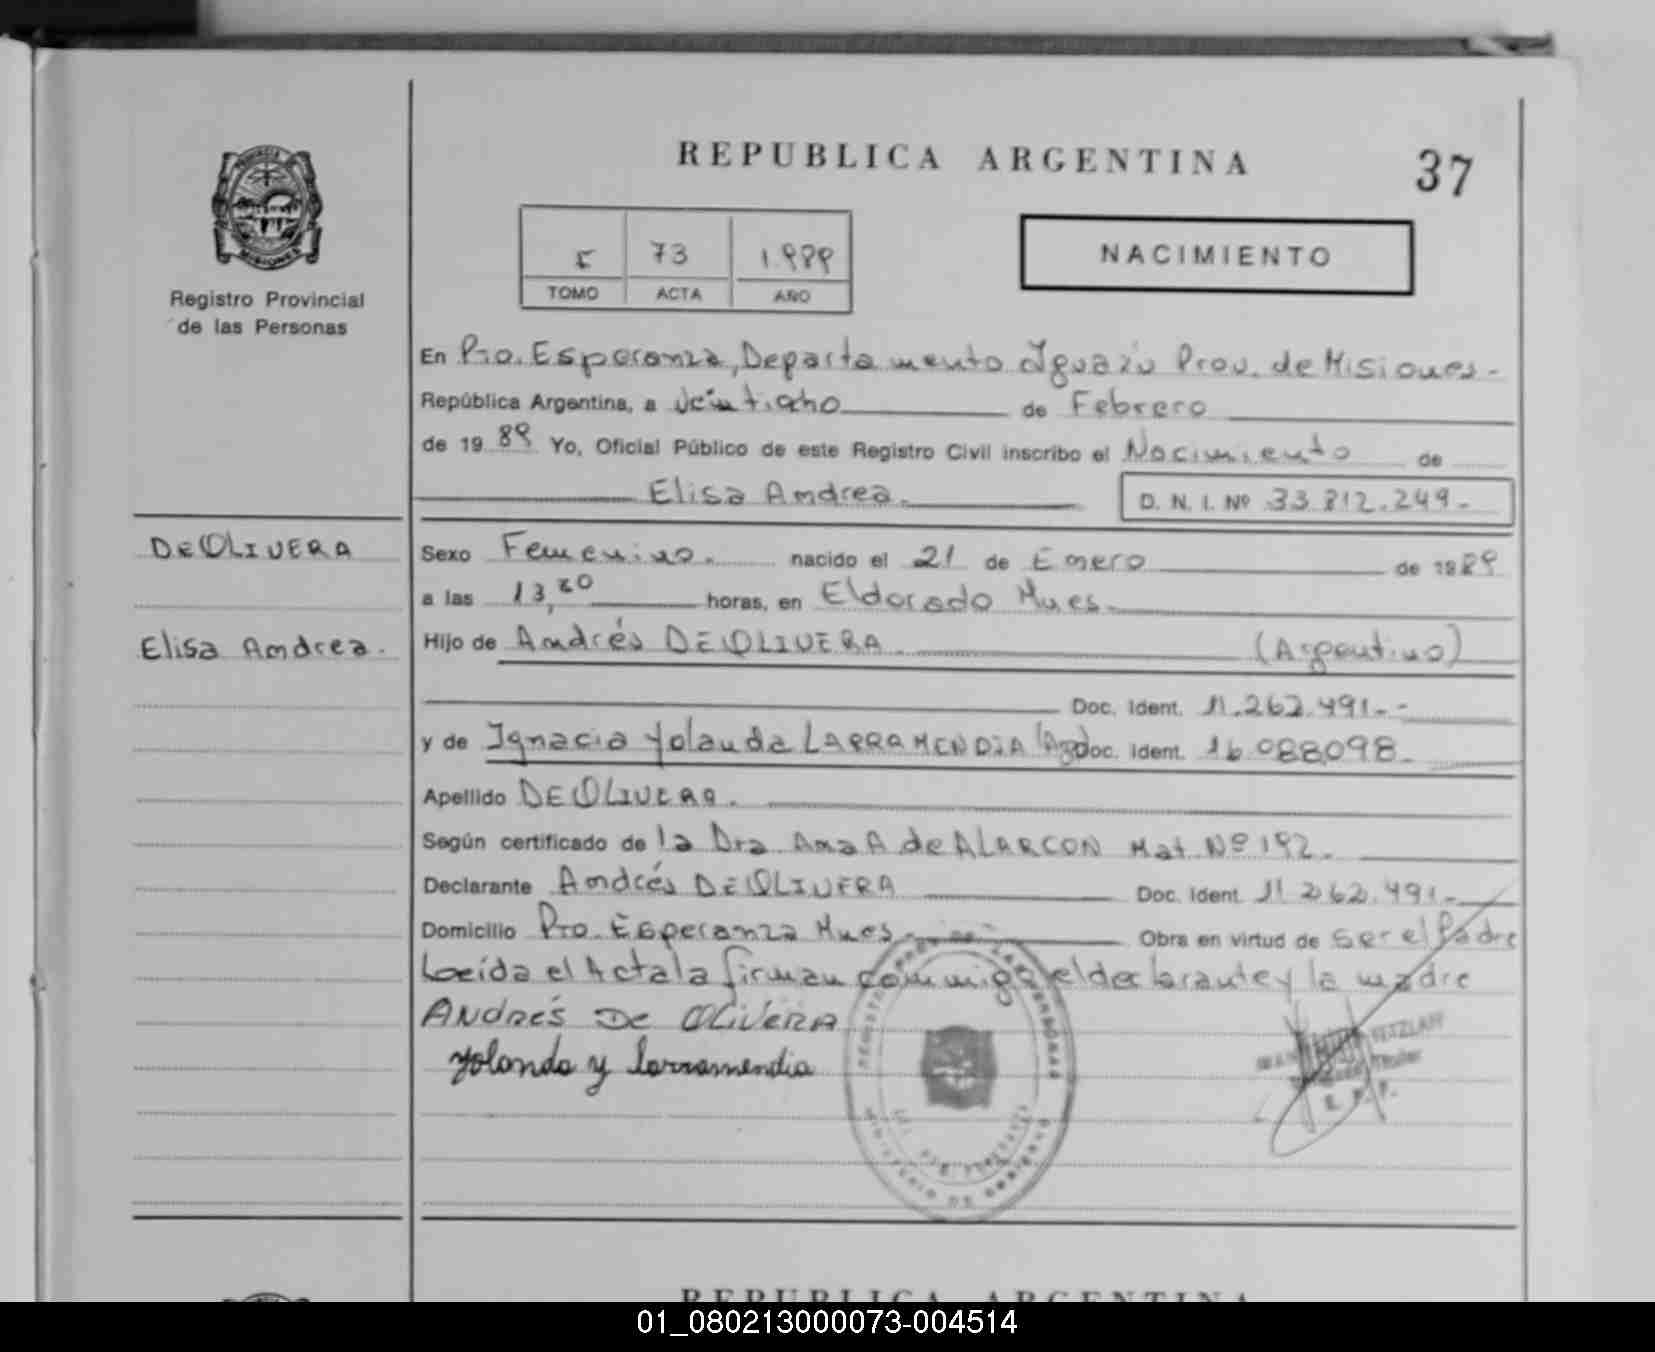 REPUBLICA ARGENTINA
37
5 73 1.989
TOMO ACTA AÑO
NACIMIENTO
MISIONES
Registro Provincial
de las Personas
En Pto. Esperanza, Departamento Iguazú Prov. de Misiones-
República Argentina, a veintiocho de Febrero
de 1989 Yo, Oficial Público de este Registro Civil inscribo el Nacimiento de
Elisa Andrea.
D. N. I. Nº 33.812.249.-
DE OLIVERA
Elisa Andrea.
Sexo Femenino. nacido el 21 de Enero de 1989
a las horas, en Eldorado Mnes.
Hijo de Andrés DE OLIVERA (Argentino)
Doc. Ident. 11.262.491.-
y de Ignacia Yolanda LARRAMENDIA Doc. Ident. 16.088098.
Apellido DE OLIVERA.
Según certificado de la Dra. Ana A de ALARCON Mat. Nº 192.
Declarante Andrés DE OLIVERA Doc. Ident. 11.262.491.-
Domicilio Pto. Esperanza Mnes. Obra en virtud de ser el Padre
Leída el Acta la firman conmigo el declarante y la madre
ANDRES DE OLIVERA
Yolanda y larramendia
Titular
REPUBLICA ARGENTINA
01_080213000073-004514